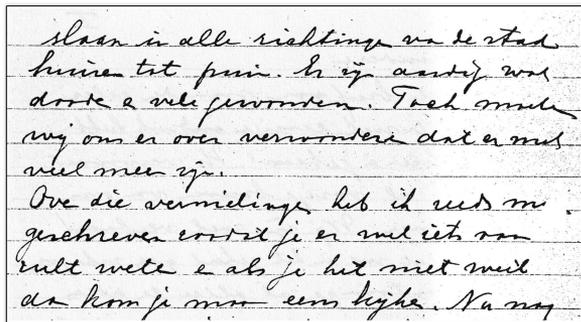 slaan in alle richtinge va de stad
huizen tot puin. Er zijn aardig wat
doode e vele gewonden. Toch moete
wij ons er over verwondere dat er niet
veel meer zijn.
Ove die vernielinge heb ik reeds
geschreven zoodat je er wel iets van
zult wete e als je het niet weet
da kom je maar eens kijke. Nu nog